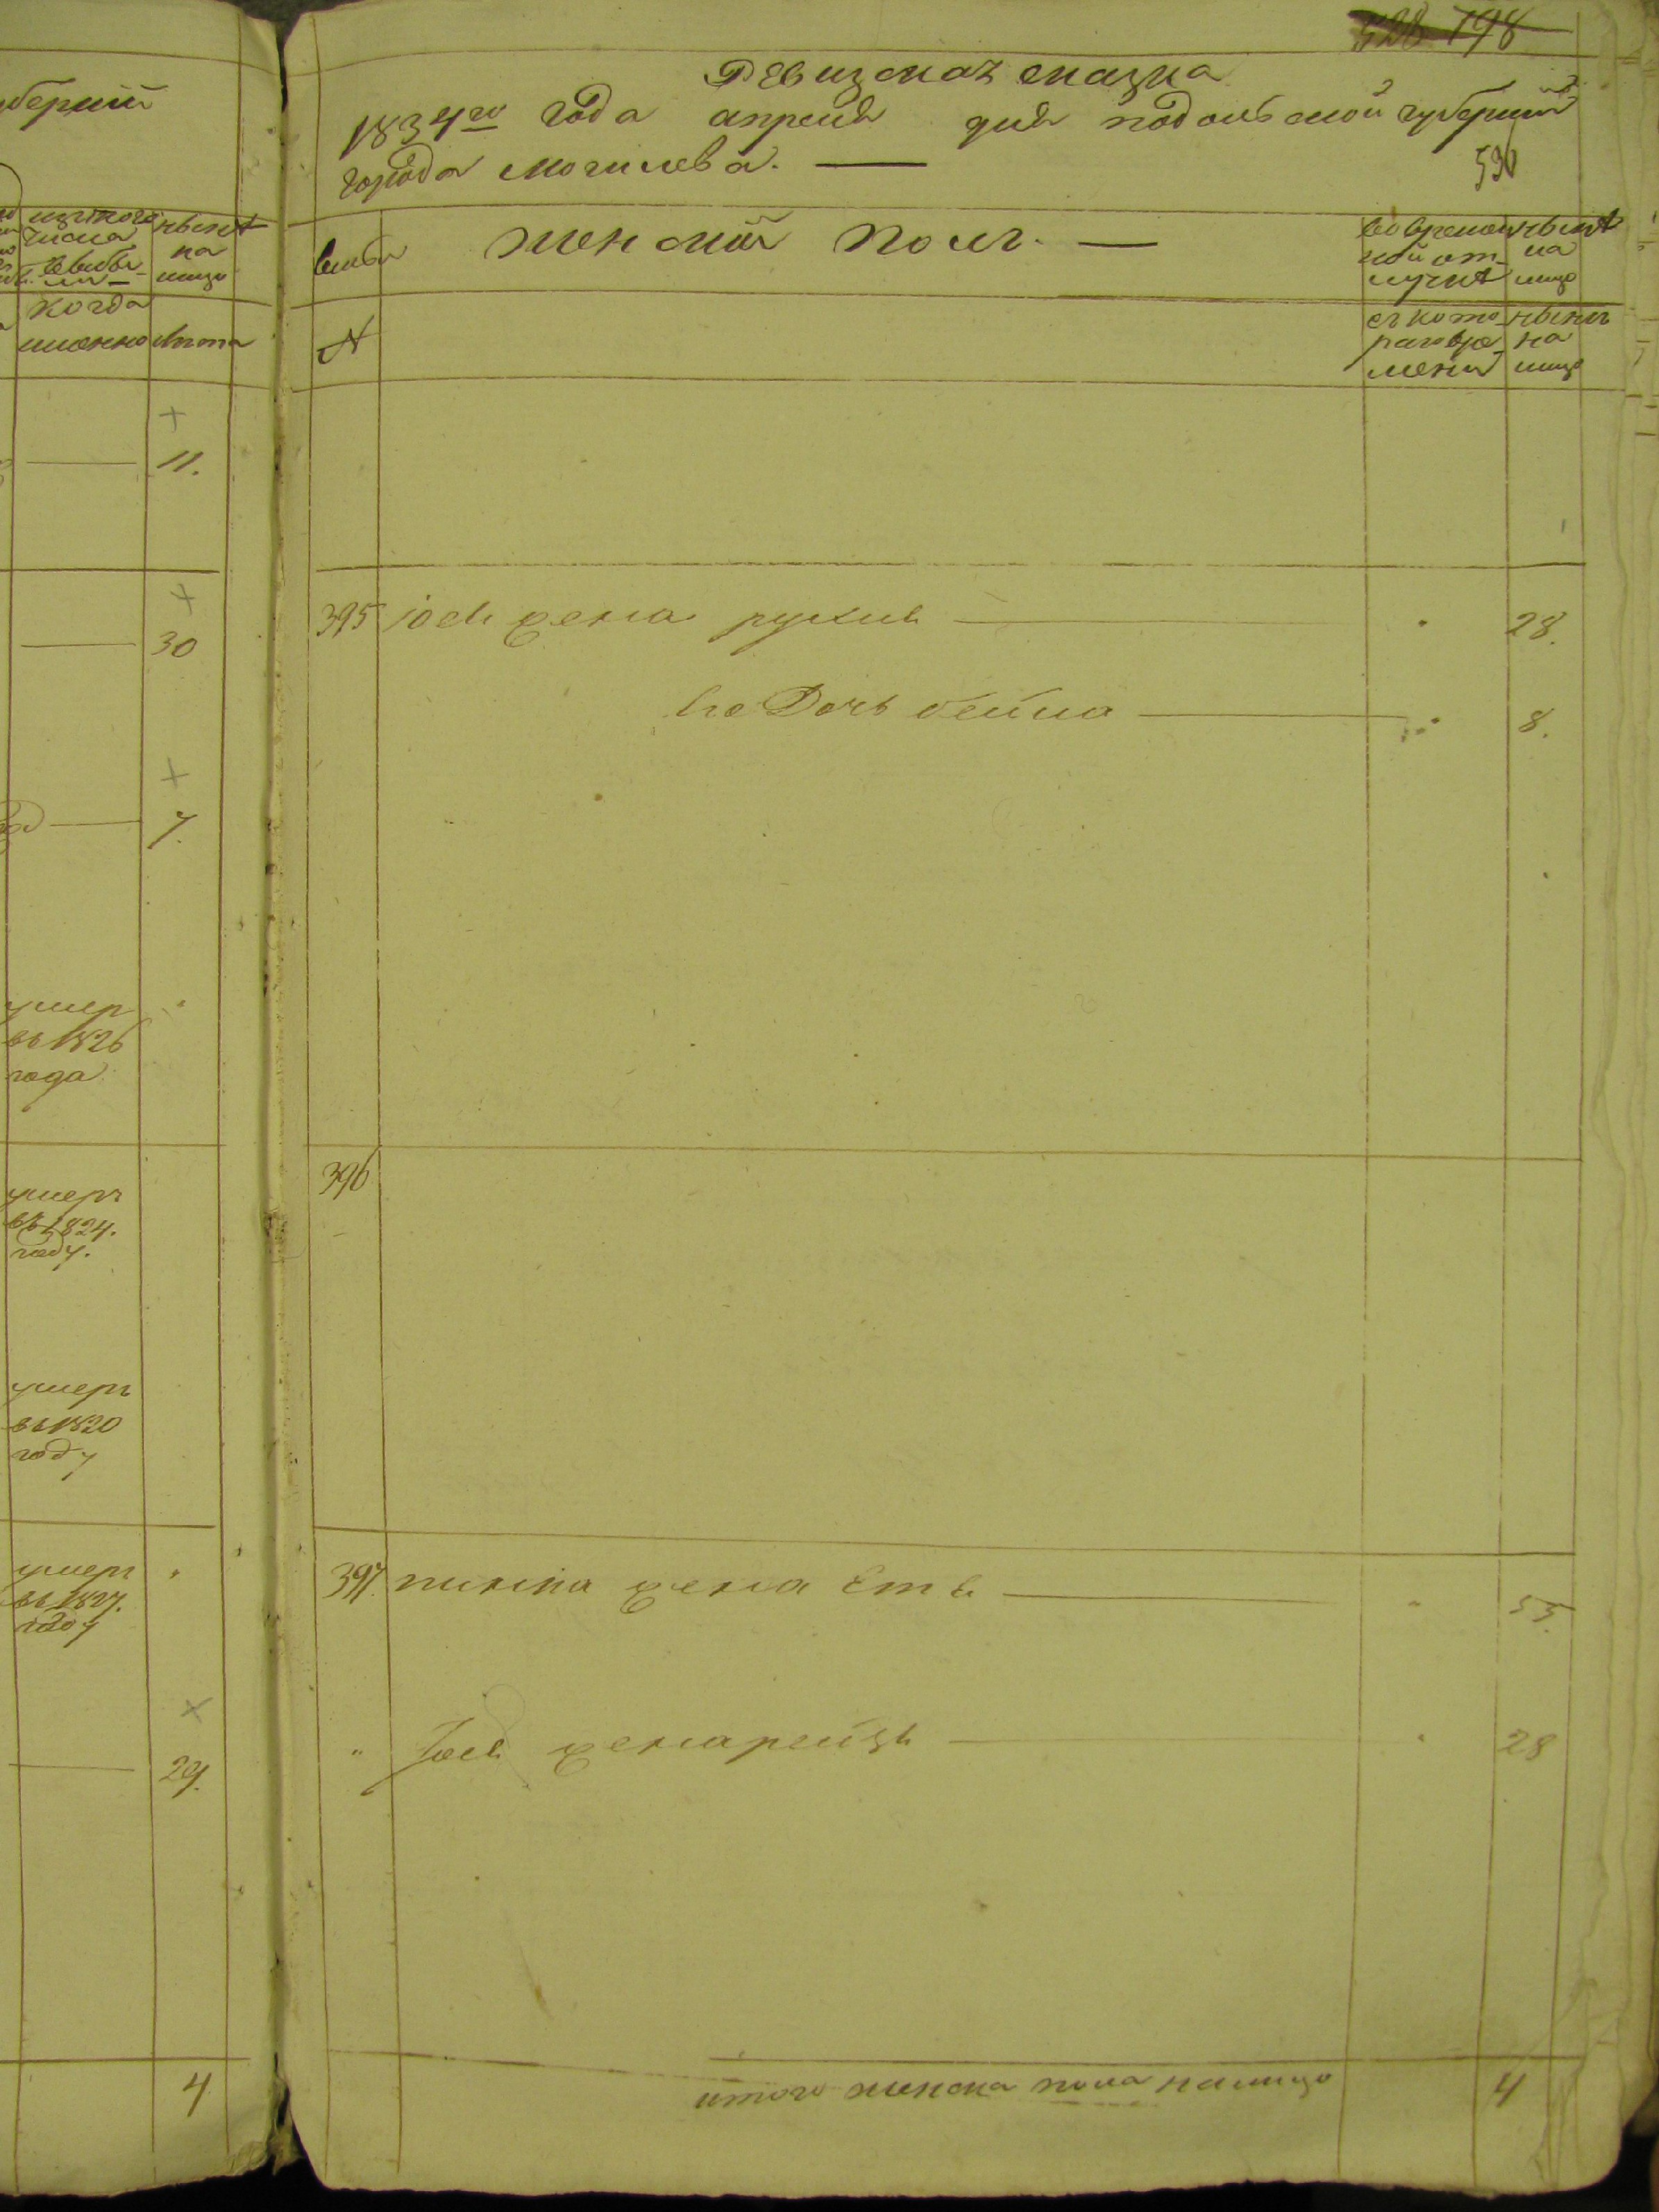 уберніи
изътого
числа
выбы
ли
ныне
на
лицо
когда
именно
лета
11.
30
7.
умер
въ 1826
года
умеръ
въ 1824.
году.
умеръ
въ 1820
году
умеръ
въ 1827.
году
29.
4
528 798
Ревизская сказка
1834го года апреля дня подольской губерніи
города могилева.
530
семьи женскій полъ.
во времен
ной от
лучке
ныне
на
лицо
№
съ кото
раго вре
мени
ныне
на
лицо
395 жена рухля 28.
его Дочь бейла 8.
396
397. пинкаса жена Етя 55.
" жена рейзя 28
итого женска пола налицо 4